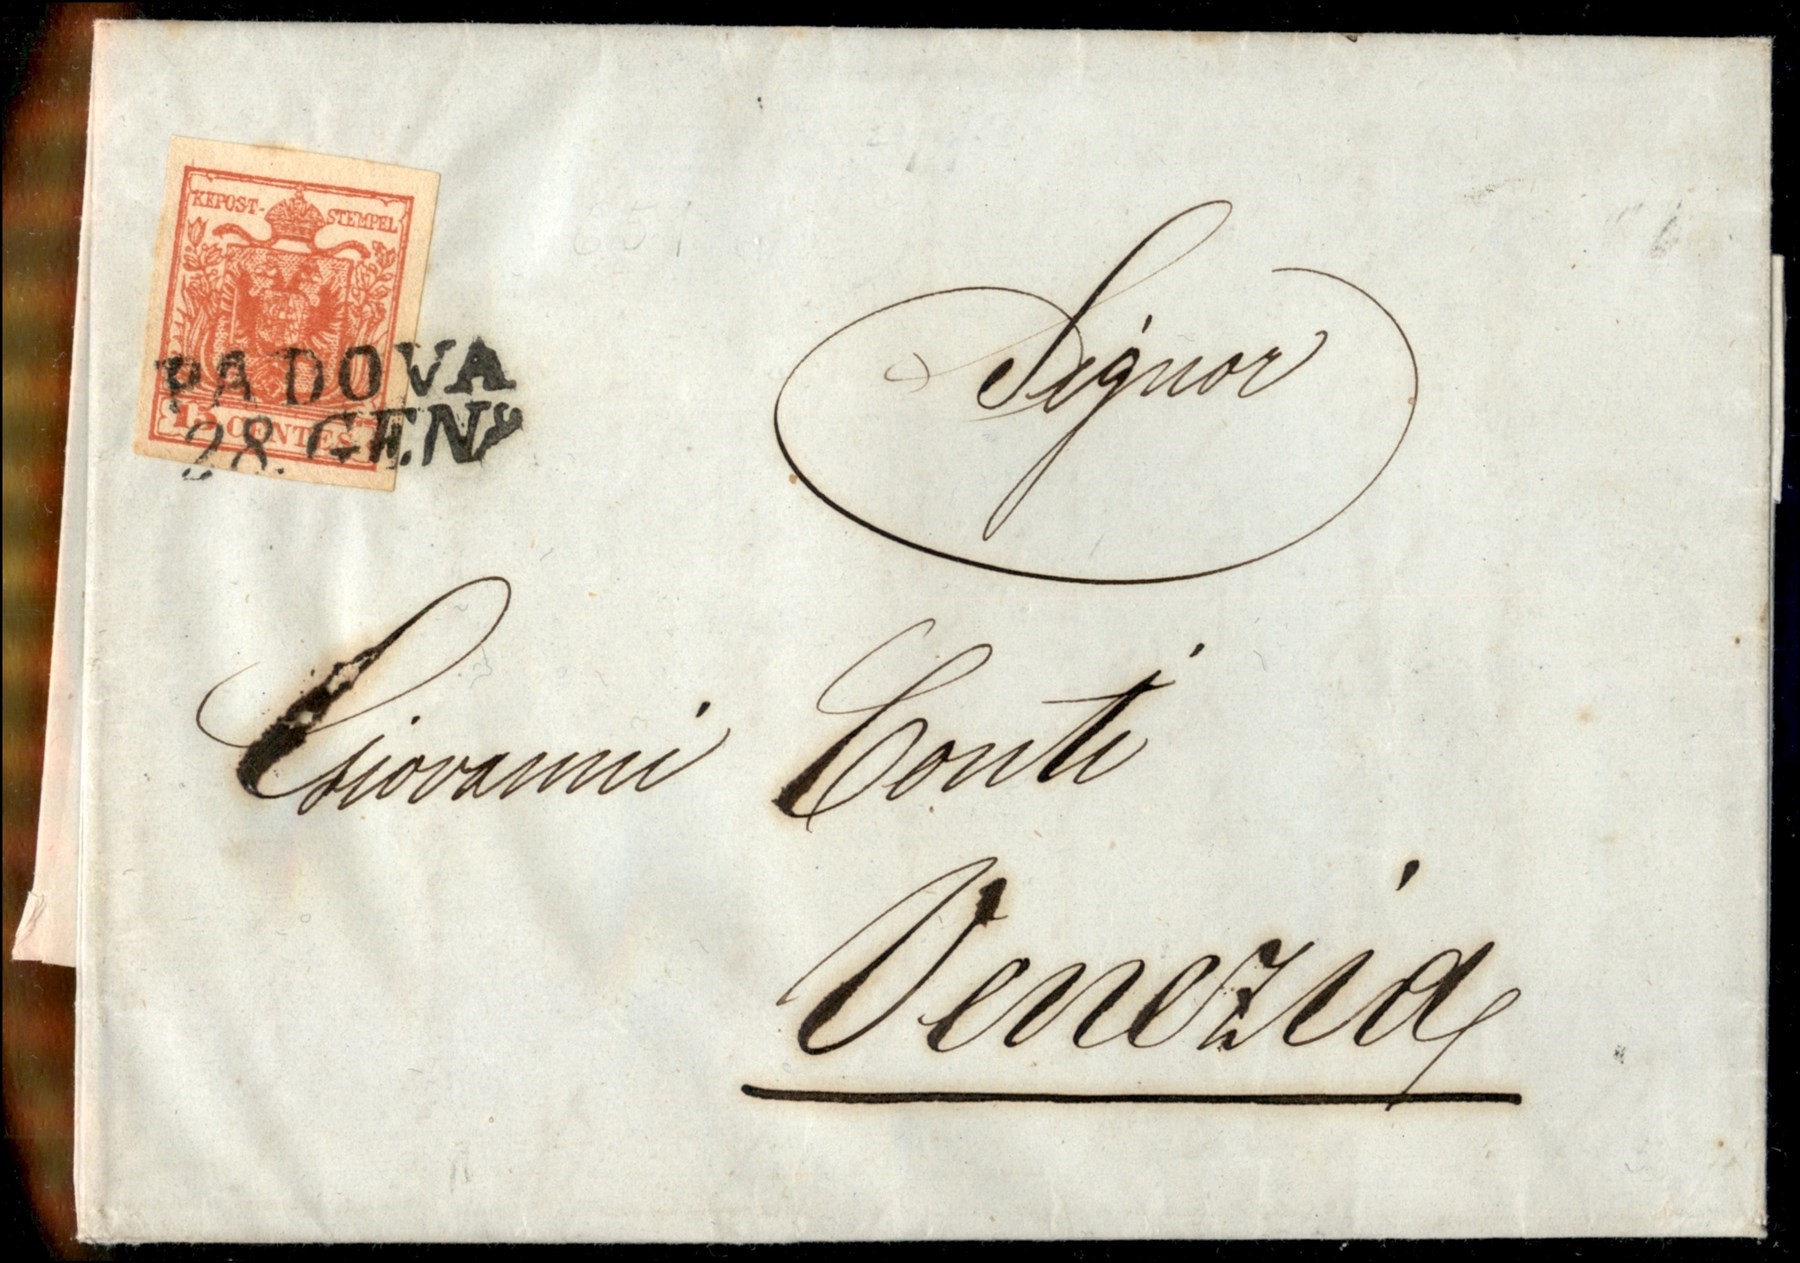 KKPOST-STEMPEL
PADOVA
15 CENTES
28. GENº
Signor
Giovanni Conti
Venezia